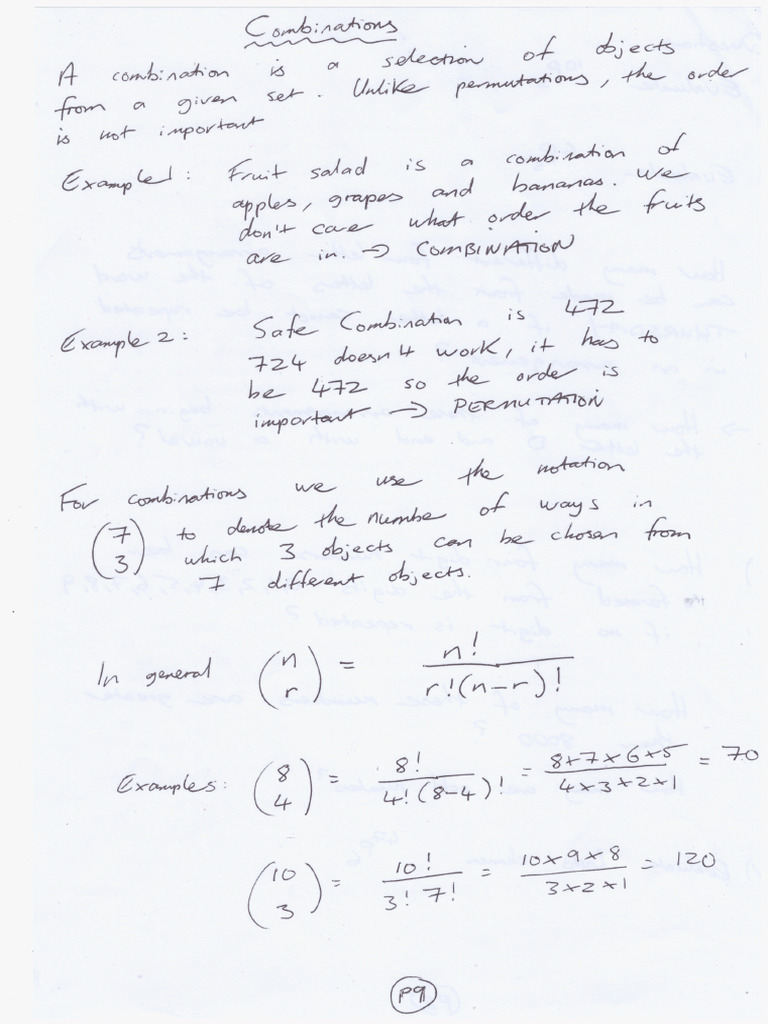 Combinations
A combination is a selection of objects
from a given set. Unlike permutations, the order
is not important
Example 1: Fruit salad is a combination of
apples, grapes and bananas. We
don't care what order the fruits
are in. → COMBINATION
Example 2: Safe Combination is 472
724 doesn't work, it has to
be 472 so the order is
important → PERMUTATION
For combinations we use the notation
(7 3) to denote the number of ways in
which 3 objects can be chosen from
7 different objects.
In general (n r) = n! / r!(n-r)!
Examples: (8 4) = 8! / 4!(8-4)! = 8×7×6×5 / 4×3×2×1 = 70
(10 3) = 10! / 3! 7! = 10×9×8 / 3×2×1 = 120
P9